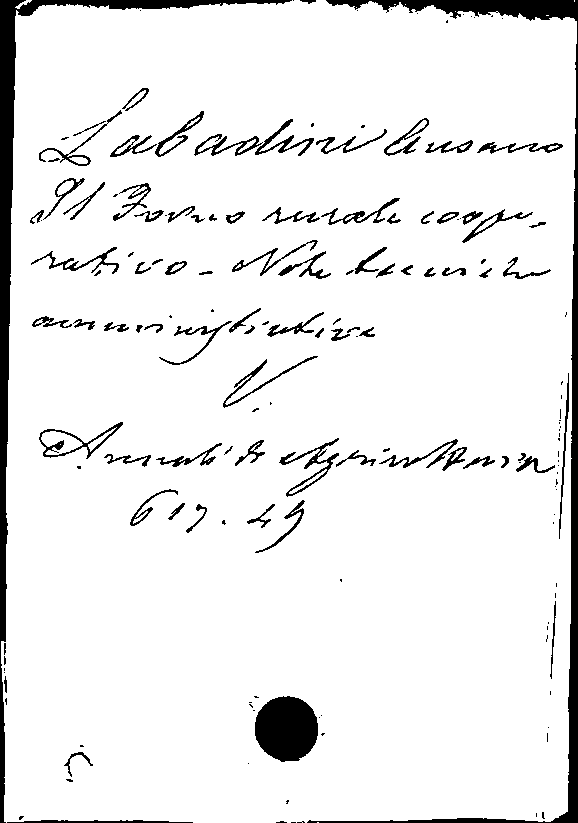 Labadini Ausano
Il Forno rurale coope-
rativo - Note tecniche
amministrative
V.
Annali di Agricoltura
617.49